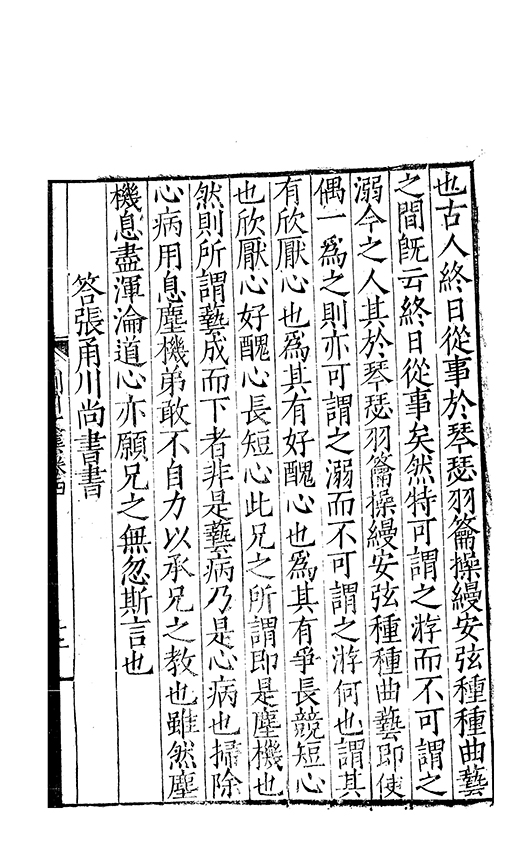 也古人終日從事於琴瑟羽籥操縵安弦種種曲藝
之間旣云終日從事矣然特可謂之游而不可謂之
溺今之人其於琴瑟羽籥操縵安弦種種曲藝即使
偶一爲之則亦可謂之溺而不可謂之游何也謂其
有欣厭心也爲其有好醜心也爲其有爭長競短心
也欣厭心好醜心長短心此兄之所謂即是塵機也
然則所謂藝成而下者非是藝病乃是心病也掃除
心病用息塵機弟敢不自力以承兄之教也雖然塵
機息盡渾淪道心亦願兄之無忽斯言也
答張甬川尚書書